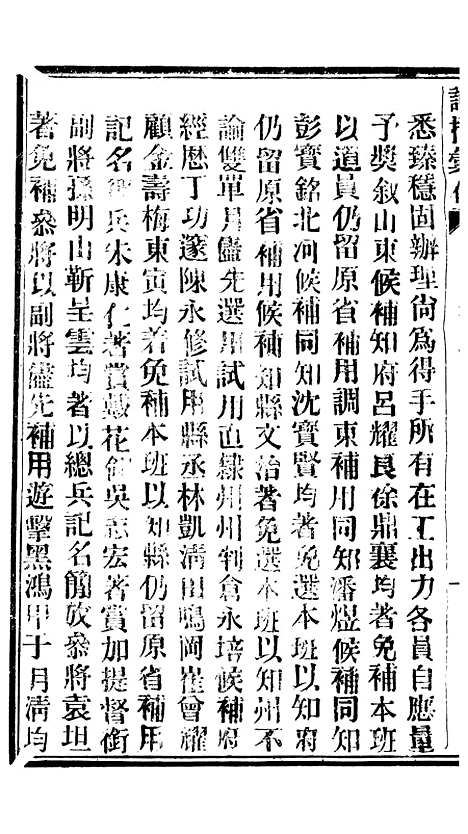 悉臻穩固辦理尙爲得手所有在工出力各員自應量
予奬敘山東候補知府呂耀良徐鼎襄均著免補本班
以道員仍留原省補用調東補用同知潘煜候補同知
彭寶銘北河候補同知沈寶賢均著免選本班以知府
仍留原省補用候補知縣文治著免選本班以知州不
論雙單月儘先選用試用直隸州州判倉永培候補府
經歷丁功邃陳永修試用縣丞林凱淸田鳴岡崔曾耀
顧金壽梅東寅均着免補本班以知縣仍留原省補用
記名總兵朱康仁著賞戴花翎吳志宏著賞加提督銜
副將孫明山靳呈雲均著以總兵記名簡放參將袁坦
著免補參將以副將儘先補用遊擊黑鴻甲于月淸均